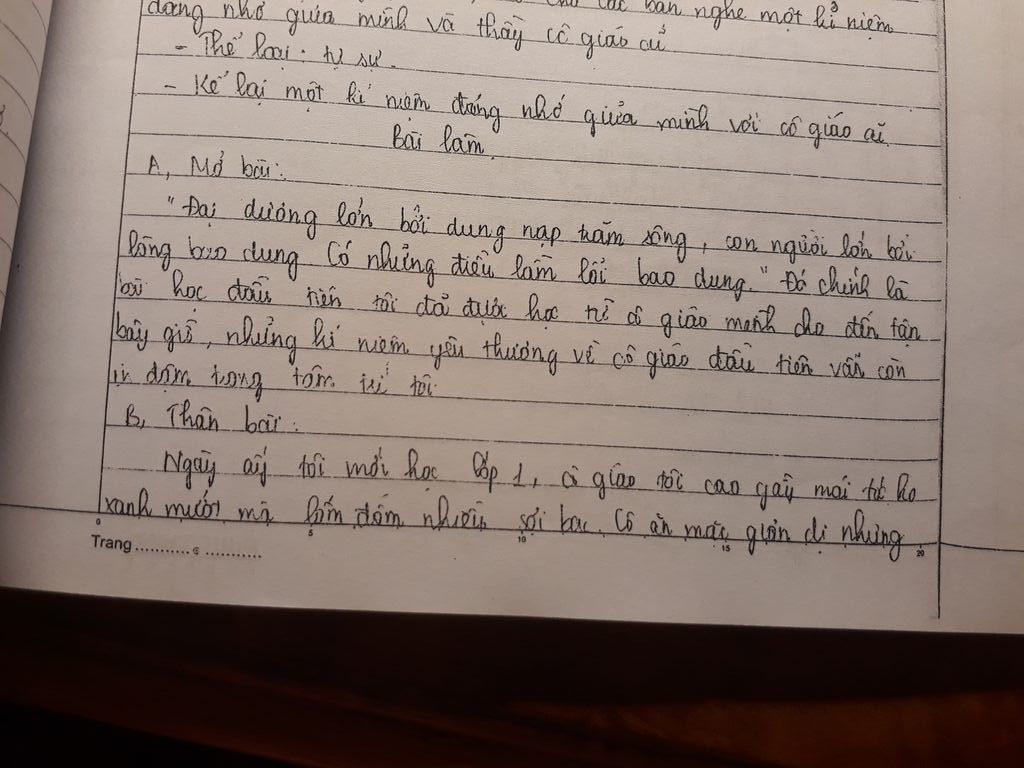 các bạn nghe một kỉ niệm
đáng nhớ giữa mình và thầy cô giáo cũ
- Thể loại: tự sự.
- Kể lại một kỉ niệm đáng nhớ giữa mình với cô giáo cũ
Bài làm.
A, Mở bài:
"Đại dương lớn bởi dung nạp trăm sông, con người lớn bởi
lòng bao dung Có những điều lầm lỗi bao dung." Đó chính là
bài học đầu tiên tôi đã được học từ cô giáo mình cho đến tận
bây giờ, những kỉ niệm yêu thương về cô giáo đầu tiên vẫn còn
in đậm trong tâm trí tôi
B, Thân bài:
Ngày ấy tôi mới học lớp 1, cô giáo tôi cao gầy mái tóc
xanh mướt mà lốm đốm nhiều sợi bạc. Cô ăn mặc giản dị nhưng
0 5 10 15 20
Trang ........... 6 ............